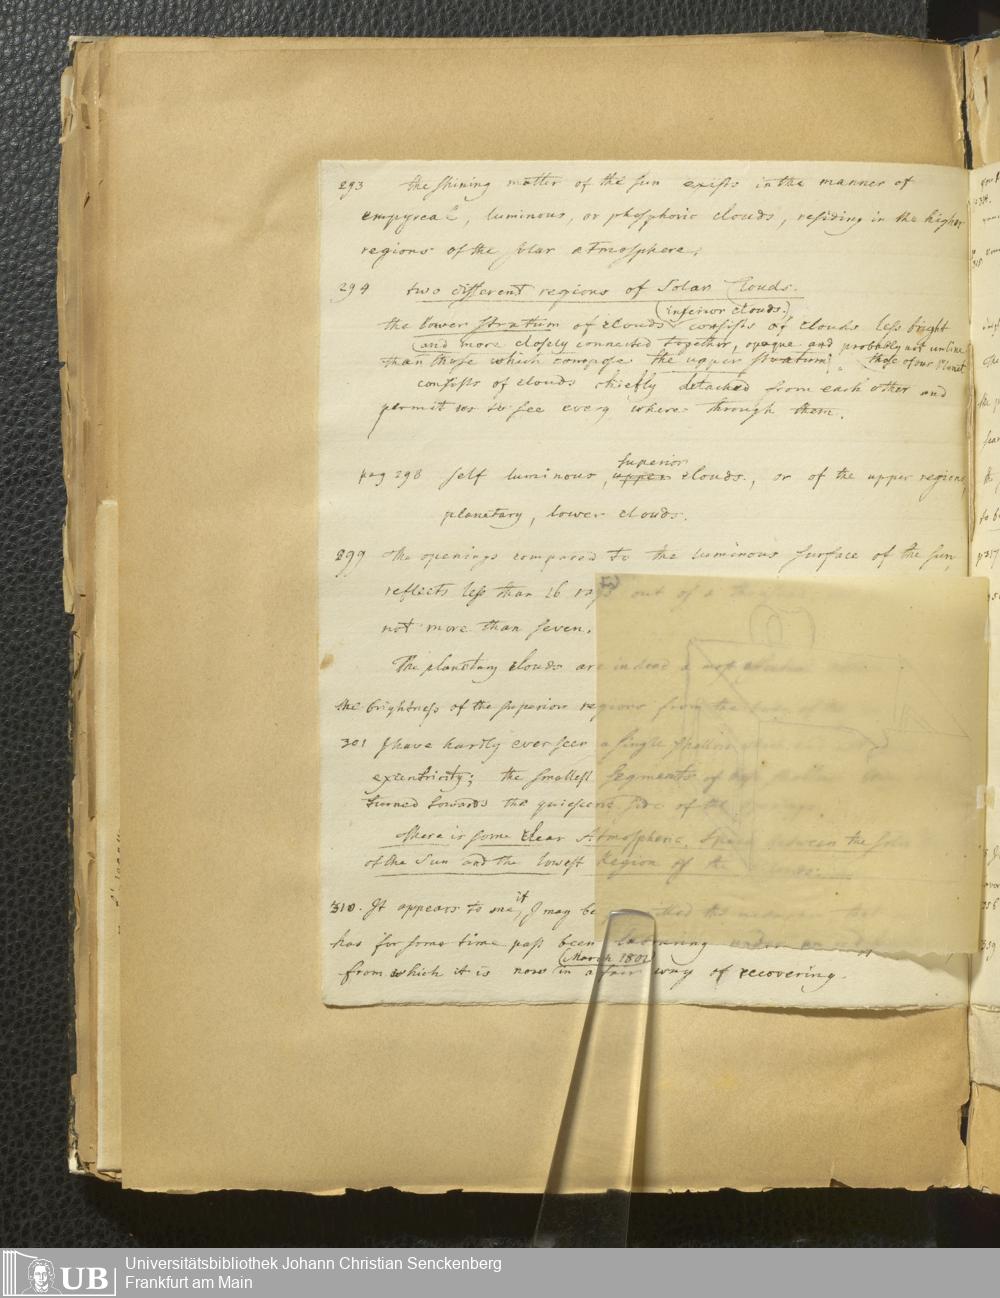 293 the shining matter of the sun exists in the manner of
empyreal, luminous, or phosphoric clouds, residing in the higher
regions of the solar atmosphere.
294 two different regions of Solar Clouds.
(inferior clouds.)
the lower stratum of clouds consists of clouds less bright
(and more closely connected together, opaque and probably not unlike
than those which compose the upper stratum those of our Planet
consists of clouds chiefly detached from each other and
permit us to see every where through them.
pag 298 self luminous, superior upper clouds, or of the upper regions,
planetary, lower clouds.
299 the openings compared to the luminous surface of the sun
reflects less than 26 rays out of a thousand
not more than seven.
The planetary clouds are indeed a most
the brightness of the superior regions from the
301 I have hardly ever seen a single shallow
excentricity; the smallest segments of
turned towards the quiescent side of the
There is some clear Atmospheric Space between the solid
of the Sun and the lowest Region of the
310. It appears to me, it I may be the
has for some time past been labouring under
(March 1801
from which it is now in a fair way of recovering.
UB Universitätsbibliothek Johann Christian Senckenberg
Frankfurt am Main